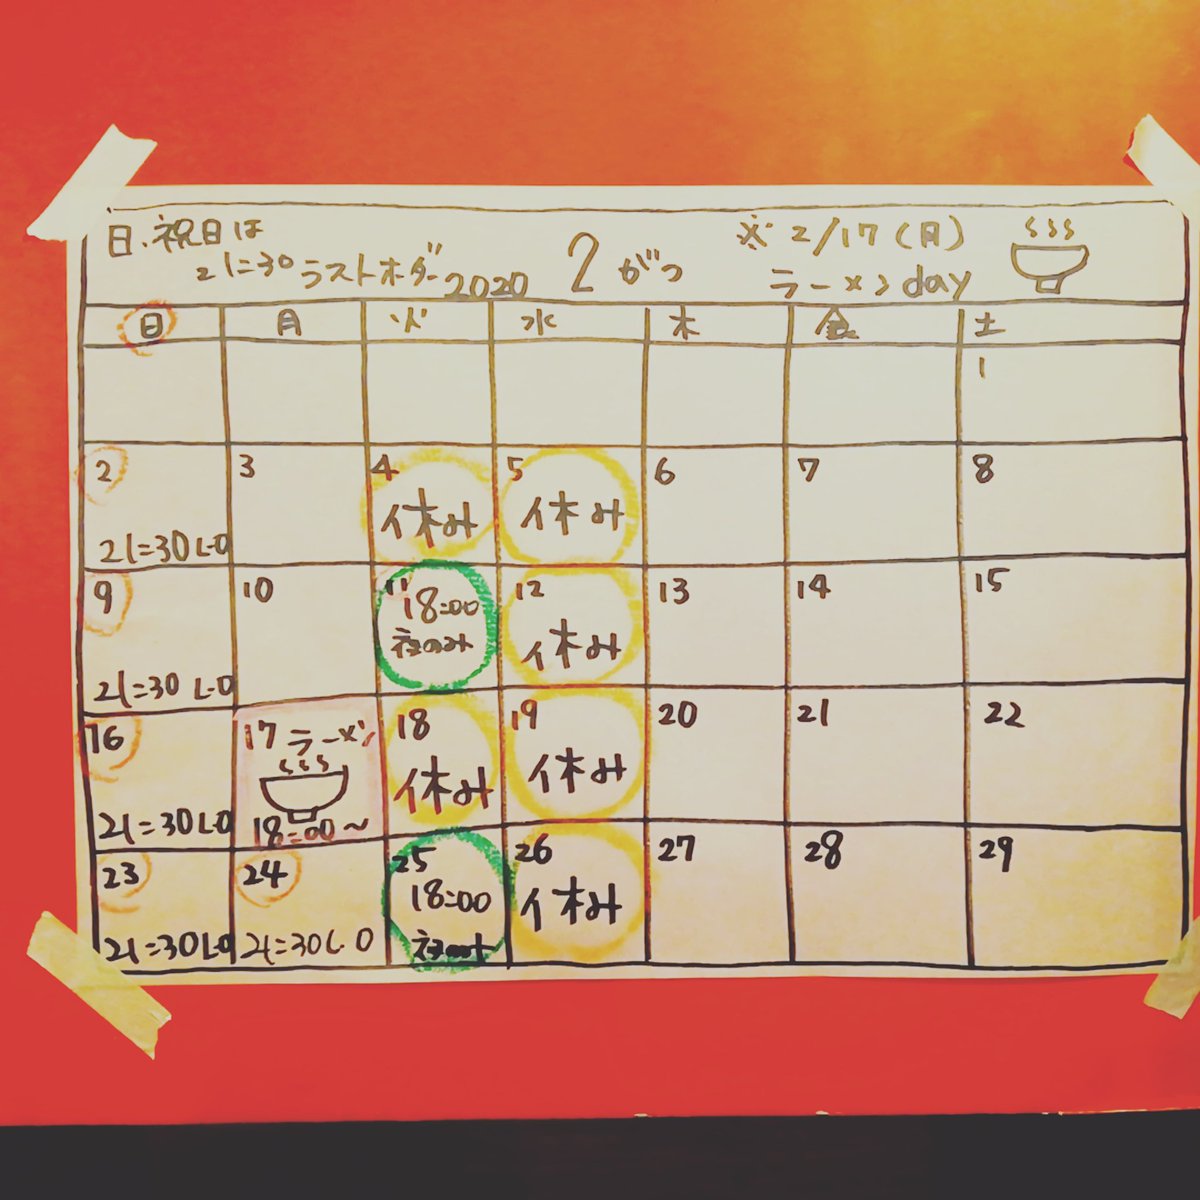 日、祝日は
21:30 ラストオーダー
2020 2がつ
※2/17(月)
ラーメンday
日 月 火 水 木 金 土
1
2 3 4 5 6 7 8
21:30 L.O 休み 休み
9 10 11 12 13 14 15
18:00
夜のみ 休み
21:30 L.O
16 17 ラーメン 18 19 20 21 22
休み 休み
21:30 L.O 18:00〜
23 24 25 26 27 28 29
18:00 休み
21:30 L.O 21:30 L.O 夜のみ